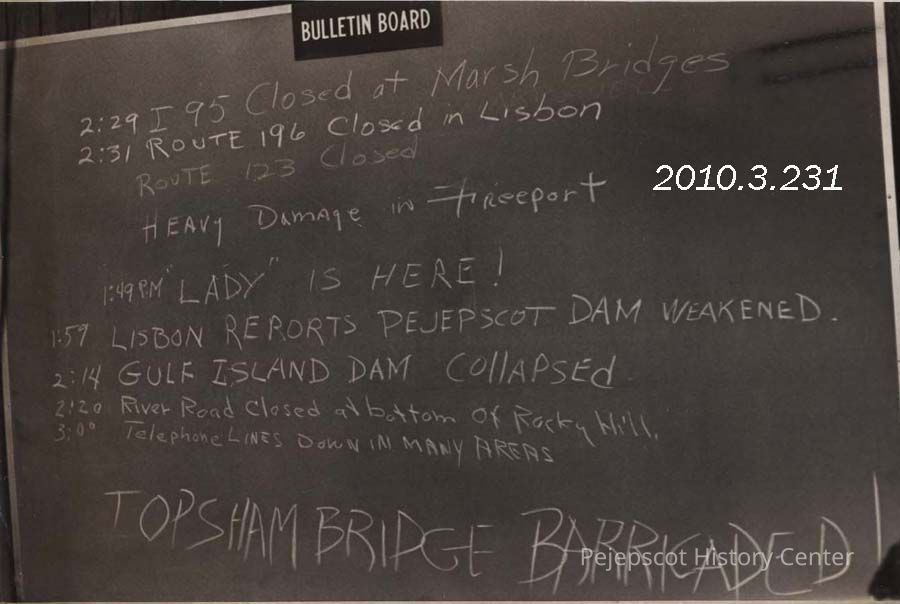 BULLETIN BOARD
2:29 I 95 Closed at Marsh Bridges
2:31 ROUTE 196 Closed in Lisbon
ROUTE 123 Closed
2010.3.231
HEAVY Damage in Freeport
1:49 P.M "LADY" IS HERE!
1:59 LISBON RERORTS PEJEPSCOT DAM WEAKENED.
2:14 GULF ISLAND DAM COllAPSEd
2:20 River Road Closed at bottom Of Rocky Hill.
3:00 Telephone LINES DOWN IN MANY AREAS
TOPSHAM BRIDGE BARRICADED!
Pejepscot History Center